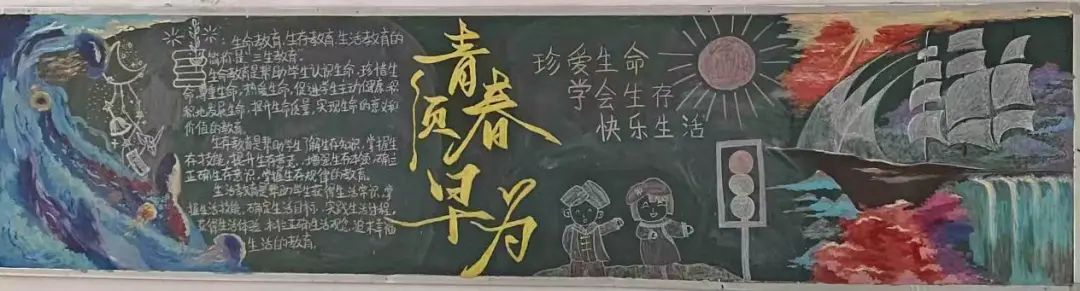 ：生命教育.生存教育.生活教育的
简称是"三生教育".
生命教育是帮助学生认识生命,珍惜生
命,尊重生命,热爱生命,促进学生主动健康积
极地发展生命,提升生命质量,实现生命的意义和
价值的教育.
生存教育是帮助学生了解生存知识,掌握生
存技能,提升生存意志,增强生存本领,确立
正确生存意识,掌握生存规律的教育.
生活教育是帮助学生获得生活常识,掌
握生活技能,确定生活目标,实践生活过程,
获得生活体验,树立正确生活观念,追求幸福
生活的教育.
青春
须早为
珍爱生命
学会生存
快乐生活